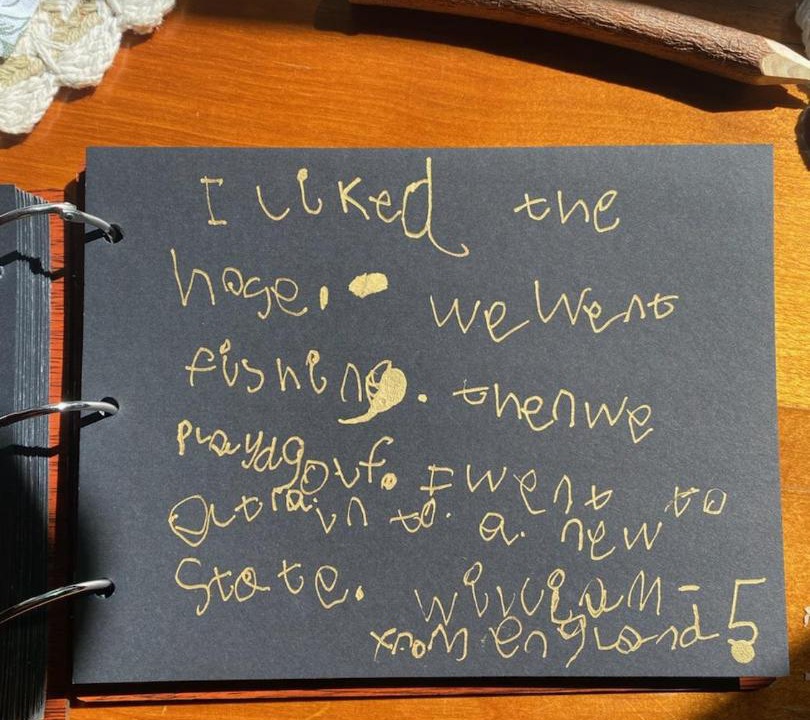 I liked the
hose. we went
fishing. then we
playd gouf. I went to
a train to a new
State. william - 5
from england